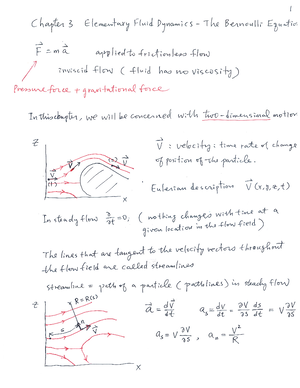 1
Chapter 3 Elementary Fluid Dynamics - The Bernoulli Equation
F = m a applied to frictionless flow
inviscid flow ( fluid has no viscosity )
Pressure force + gravitational force
In this chapter, we will be concerned with two-dimensional motion
Z
V : velocity : time rate of change
of position of the particle.
(2) V
V
V
(1)
x
Eulerian description V (x, y, z, t)
In steady flow ∂/∂t = 0, ( nothing changes with time at a
given location in the flow field )
The lines that are tangent to the velocity vectors throughout
the flow field are called streamlines
streamline = path of a particle ( pathlines ) in steady flow
Z
R = R(s)
s
n
V
x
a = dV/dt a_s = dV/dt = ∂V/∂s ds/dt = V ∂V/∂s
a_s = V ∂V/∂s , a_n = V²/R